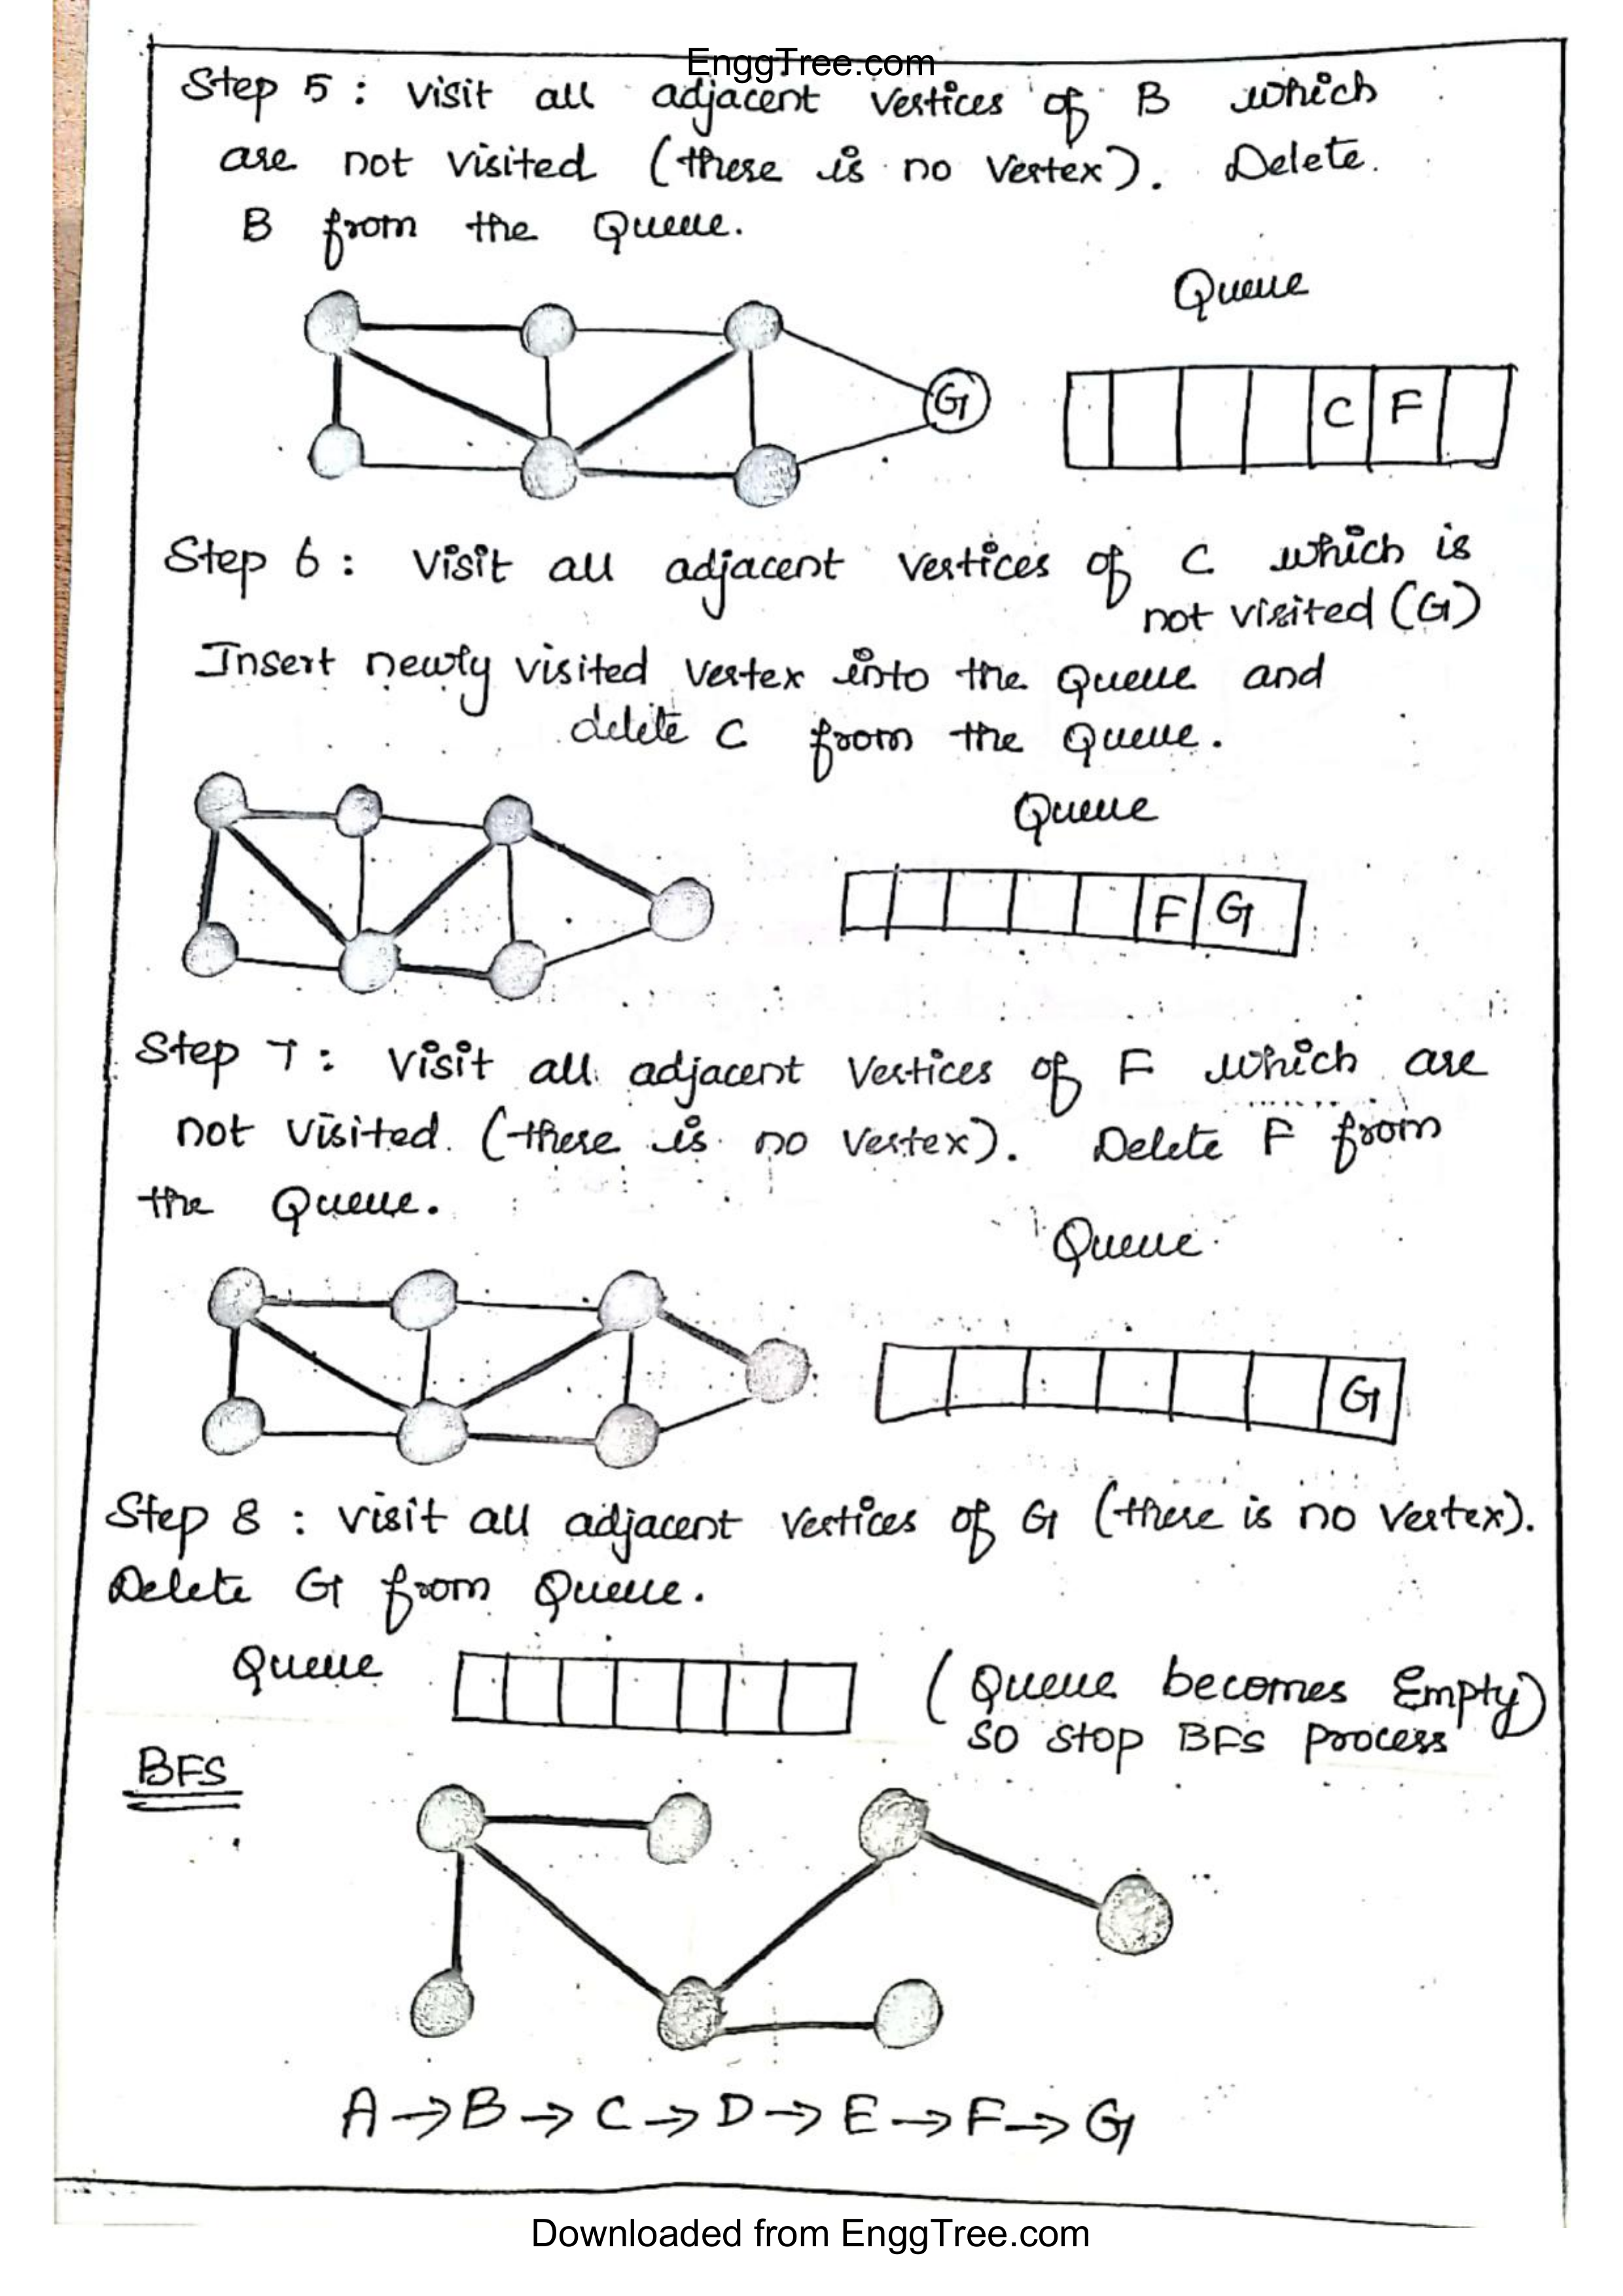 EnggTree.com
Step 5 : Visit all adjacent vertices of B which
are not visited (there is no vertex). Delete.
B from the Queue.
Queue
G
C F
Step 6 : Visit all adjacent vertices of C which is
not visited (G)
Insert newly visited vertex into the Queue and
delete C from the Queue.
Queue
F G
Step 7 : Visit all adjacent vertices of F which are
not visited. (there is no vertex). Delete F from
the Queue.
Queue
G
Step 8 : visit all adjacent vertices of G (there is no vertex).
Delete G from Queue.
Queue
(Queue becomes Empty)
so stop BFS Process
BFS
A → B → C → D → E → F → G
Downloaded from EnggTree.com